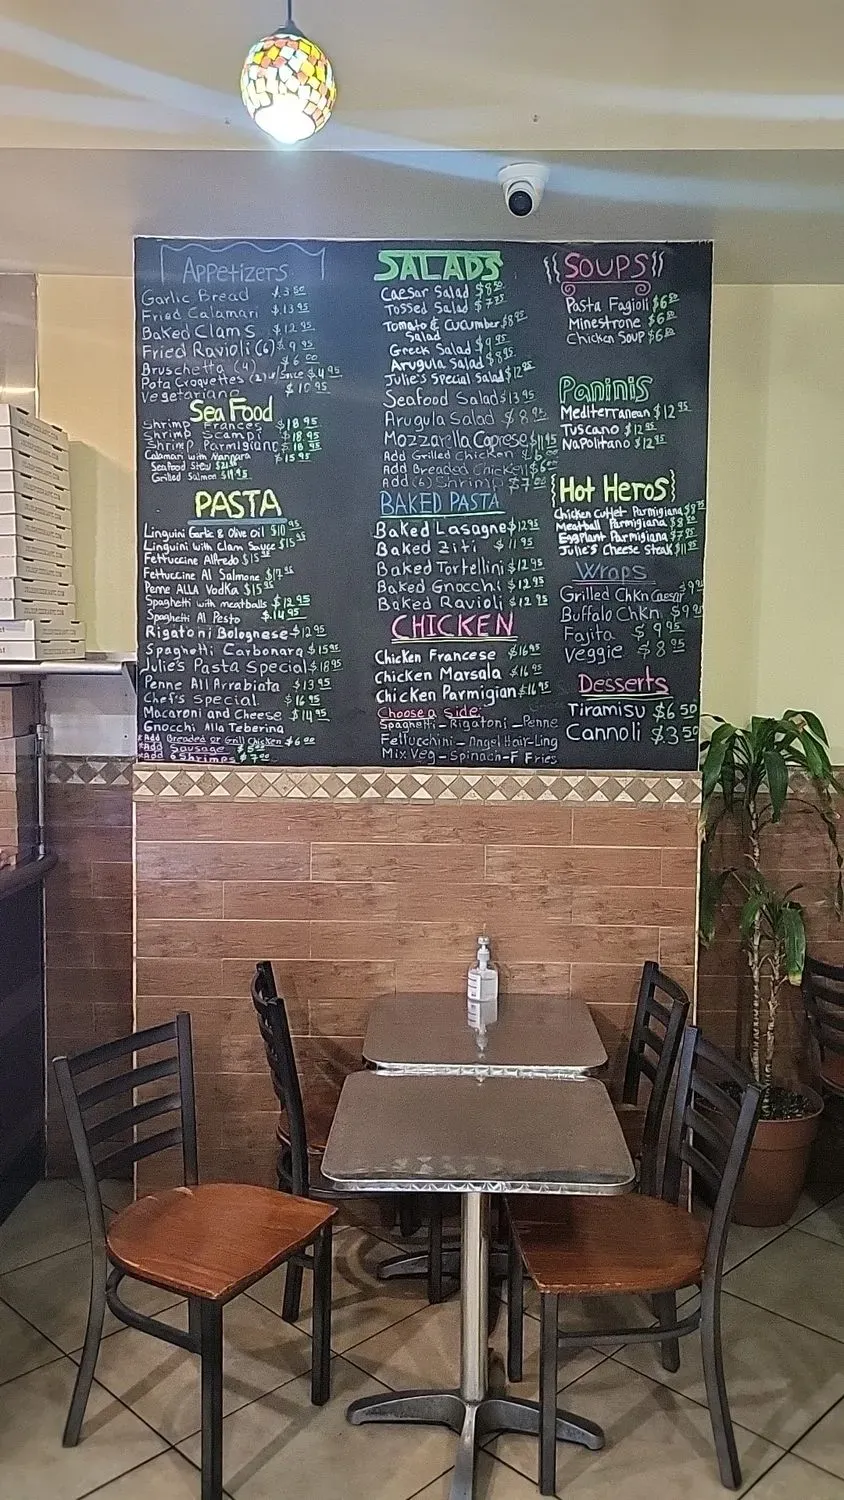 Appetizers
Garlic Bread $.3 50
Fried Calamari $.13 95
Baked Clams $.12 95
Fried Ravioli (6) $.9 95
Bruschetta (4) $6 00
Pota Croquettes (2) w/ Sauce $4 95
Vegetariano $10 95
Sea Food
Shrimp Frances $18 95
Shrimp Scampi $18.95
Shrimp Parmigiano $18 95
Calamari with Marinara $15 95
Seafood Stew
Grilled Salmon $19.95
PASTA
Linguini Garlic & Olive oil $10 95
Linguini with Clam Sauce $15
Fettuccine Alfredo $15
Fettuccine Al Salmone
Penne ALLA Vodka $15 95
Spaghetti with meatballs $12 95
Spaghetti Al Pesto $.14 95
Rigatoni Bolognese $12 95
Spaghetti Carbonara $15 95
Julie's Pasta Special $18 95
Penne All Arrabiata $13 95
Chef's Special $16 95
Macaroni and Cheese $14 95
Gnocchi Alla Teberina
*Add Breaded or Grill Chicken $6 00
*Add Sausage
*Add 6 Shrimps $7 00
SALADS
Caesar Salad $8 50
Tossed Salad $7 75
Tomato & Cucumber $8 95
Salad
Greek Salad $9 95
Arugula Salad $8 95
Julie's Special Salad $12 95
Seafood Salad $13 95
Arugula Salad $8 95
Mozzarella Caprese $11 95
Add Grilled Chicken $6
Add Breaded Chicken $6
Add (6) Shrimp $7 00
BAKED PASTA
Baked Lasagne $12 95
Baked Ziti $11 95
Baked Tortellini $12 95
Baked Gnocchi $12 95
Baked Ravioli $12 95
CHICKEN
Chicken Francese $16 95
Chicken Marsala $16 95
Chicken Parmigian $16 95
Choose a side:
Spaghetti - Rigatoni - Penne
Fettucchini - Angel Hair - Ling
Mix Veg - Spinach - F Fries
SOUPS
Pasta Fagioli $6 50
Minestrone $6 50
Chicken Soup $6 50
Paninis
Mediterranean $12 95
Tuscano $12 95
Napolitano $12 95
Hot Heros
Chicken Cutlet Parmigiana $8 75
Meatball Parmigiana $8 50
Eggplant Parmigiana $7 95
Julie's Cheese Steak $11 95
Wraps
Grilled Chkn Caesar $9 95
Buffalo Chkn. $9 95
Fajita $9 95
Veggie $8 95
Desserts
Tiramisu $6 50
Cannoli $3 50